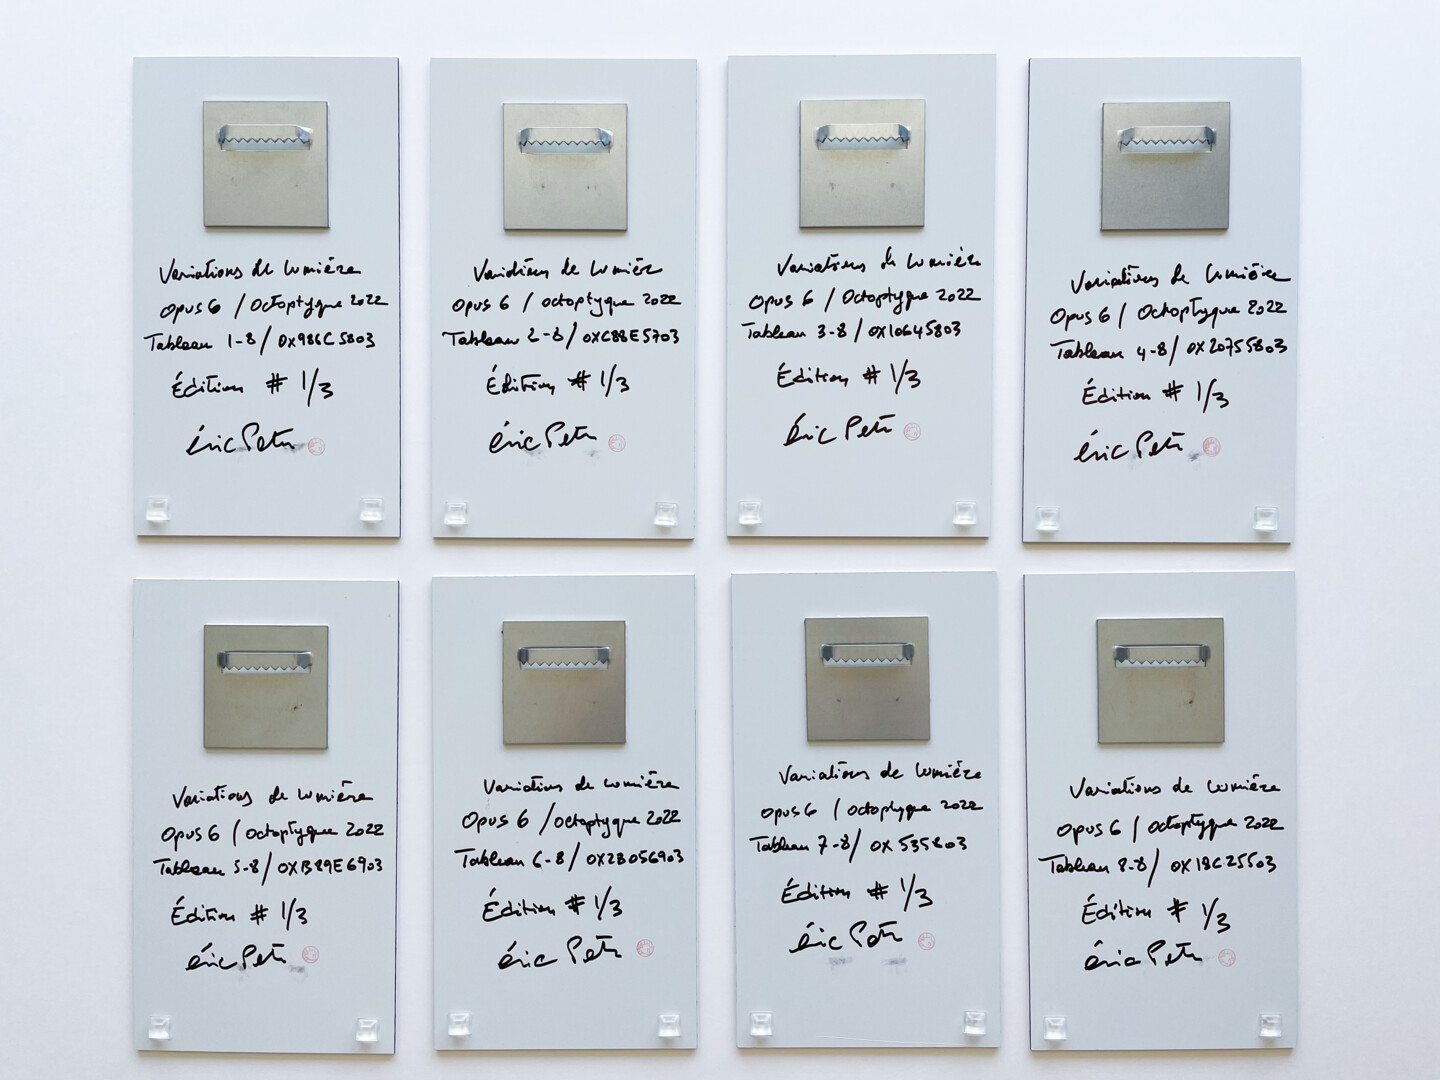 Variations de Lumière
Opus 6 / Octoptyque 2022
Tableau 1-8 / 0x986C5803
Édition # 1/3
éric Petr
Variations de Lumière
Opus 6 / Octoptyque 2022
Tableau 2-8 / 0xC88E5703
Édition # 1/3
éric Petr
Variations de Lumière
Opus 6 / Octoptyque 2022
Tableau 3-8 / 0x10645803
Édition # 1/3
éric Petr
Variations de Lumière
Opus 6 / Octoptyque 2022
Tableau 4-8 / 0x20755803
Édition # 1/3
éric Petr
Variations de Lumière
Opus 6 / Octoptyque 2022
Tableau 5-8 / 0xB89E6903
Édition # 1/3
éric Petr
Variations de Lumière
Opus 6 / Octoptyque 2022
Tableau 6-8 / 0x2B056903
Édition # 1/3
éric Petr
Variations de Lumière
Opus 6 / Octoptyque 2022
Tableau 7-8 / 0x535803
Édition # 1/3
éric Petr
Variations de Lumière
Opus 6 / Octoptyque 2022
Tableau 8-8 / 0x18C25503
Édition # 1/3
éric Petr